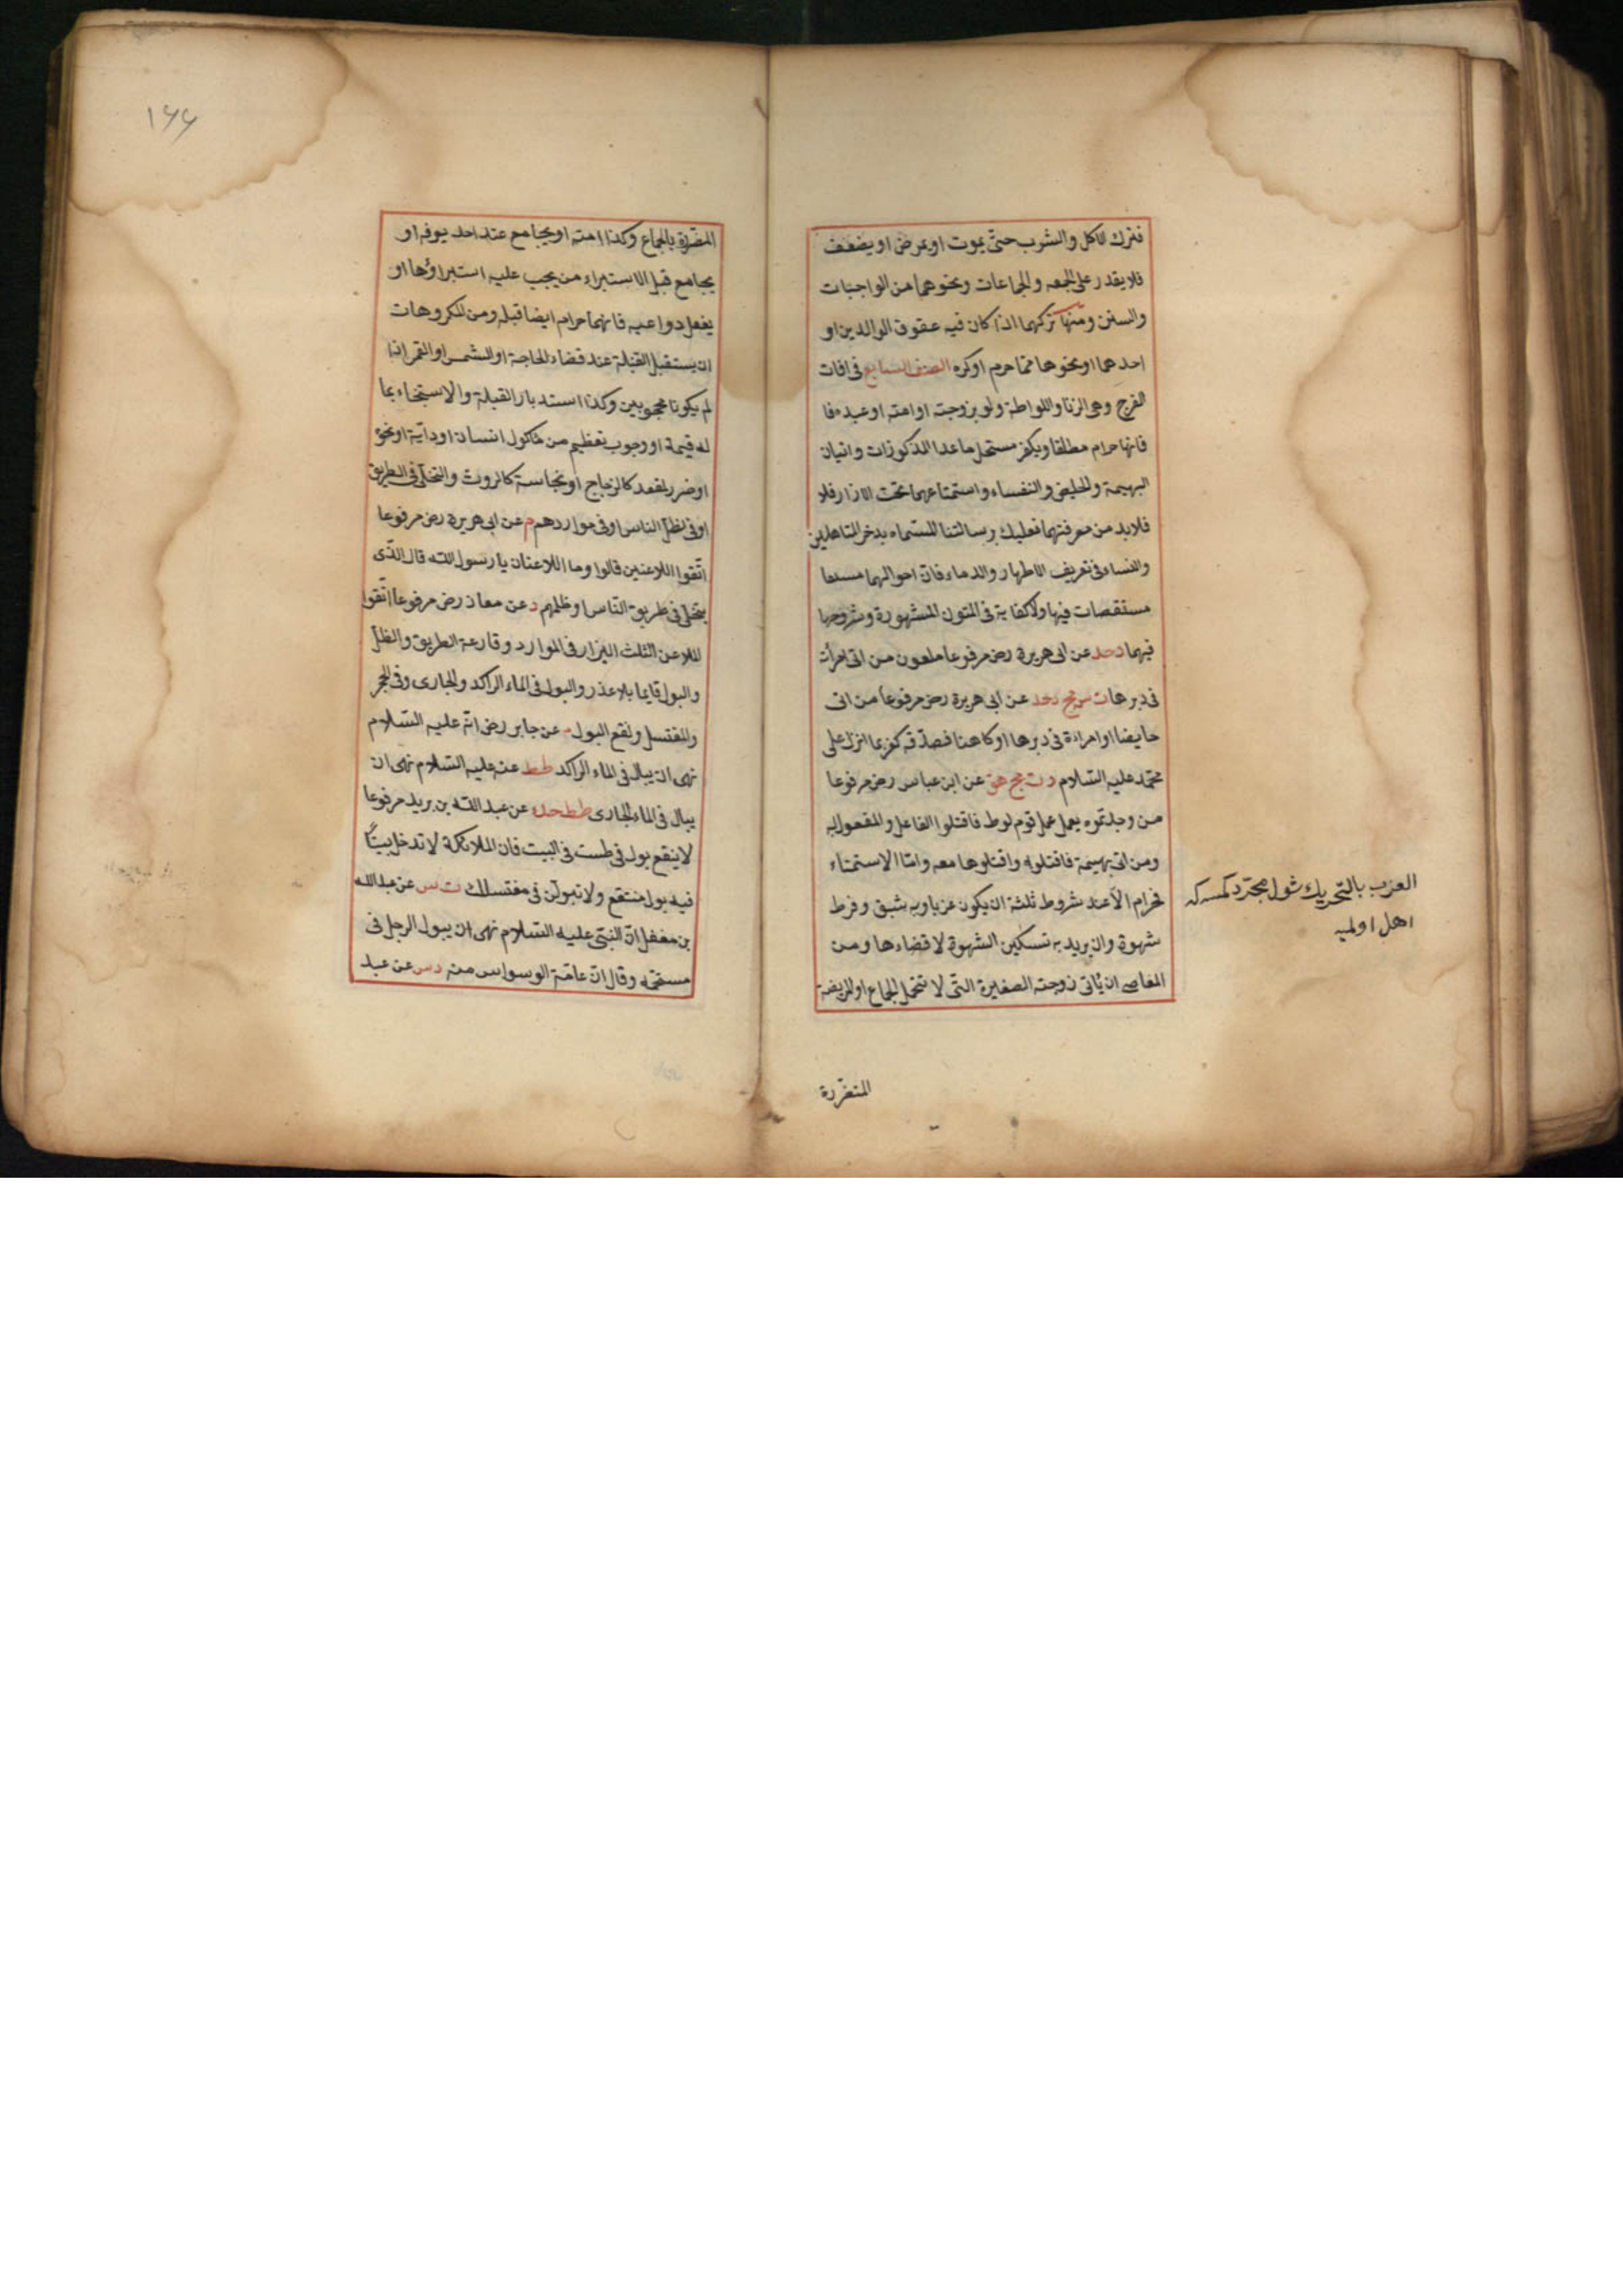 فترك الاكل والشرب حتى يموت او يمرض او يضعف
فلا يقدر على الجمعه والجماعات ونحوهما من الواجبات
والسنن ومنها تركهما اذا كان فيه عقوق الوالدين او
احدهما او نحوها مما حرم او كره الصنف السابع فى افات
الفرج وهى الزنا واللواطة ولو بزوجته او امته او عبده فا
فانها حرام مطلقا ويكفر مستحل ما عدا المذكورات واتيان
البهيمة والحايض والنفساء واستمتاعهما تحت الازار فلا
فلا بد من معرفتهما فعليك برسالتنا المسماه بذخر المتاهلين
والنساء فى تعريف الاطهار والدماء فان احوالهما
مستقصات فيها ولا كفاية فى المتون المشهورة وشروحها
فيهما دحد عن ابى هريرة رض مرفوعا ملعون من اتى امرأت
فى دبرها ت س مج دحد عن ابى هريرة رض مرفوعا من اتى
حايضا او امراءة فى دبرها او كاهنا فصدقه كفر بما انزل على
محمد عليه السلام د ت مج هق عن ابن عباس رض مرفوعا
من وجدتموه يعمل عمل قوم لوط فاقتلوا الفاعل والمفعول به
ومن اتى بهيمة فاقتلوه واقتلوها معه واما الاستمناء
فحرام الا عند شروط ثلثة ان يكون عزبا وبه شبق وفرط
شهوة وان يريد به تسكين الشهوة لا قضاءها ومن
المعاصى ان يأتى زوجته الصغيرة التى لا تتحمل الجماع او المريضة
العزب بالتحريك شول مجرد كمسه كه
اهل اولميه
المتضررة
١٦٦
المتضررة بالجماع وكذا امته او يجامع عند احد يوفه او
يجامع قبل الاستبراء من يجب عليه استبراؤها او
يفعل دواعيه فانهما حرام ايضا قبله ومن المكروهات
ان يستقبل القبلة عند قضاء الحاجة او الشمس او القمر اذا
لم يكونا محجوبين وكذا استدبار القبلة والاستنجاء بما
له قيمة او وجوب تعظيم من ماكول انسان او دابة او نحو
او ضرر لمقعد كالزجاج او نجاسة كالروث والتخلى فى الطريق
او فى ظل الناس او فى مواردهم م عن ابى هريرة رض مرفوعا
اتقوا اللاعنين قالوا وما اللاعنان يا رسول الله قال الذى
يتخلى فى طريق الناس او ظلهم د عن معاذ رض مرفوعا اتقوا
الملاعن الثلث البراز فى الموارد وقارعة الطريق والظل
والبول قايما بلا عذر والبول فى الماء الراكد والجارى وفى الحجر
والمغتسل ونقع البول م عن جابر رض انه عليه السلام
نهى ان يبال فى الماء الراكد طط عنه عليه السلام نهى ان
يبال فى الماء الجارى طط حده عن عبد الله بن بريد مرفوعا
لا ينقع بول فى طست فى البيت فان الملائكة لا تدخل بيتا
فيه بول منتقع ولا تبولن فى مغتسلك ت س عن عبد الله
بن مغفل ان النبى عليه السلام نهى ان يبول الرجل فى
مستحمه وقال ان عامة الوسواس منه دس عن عبد